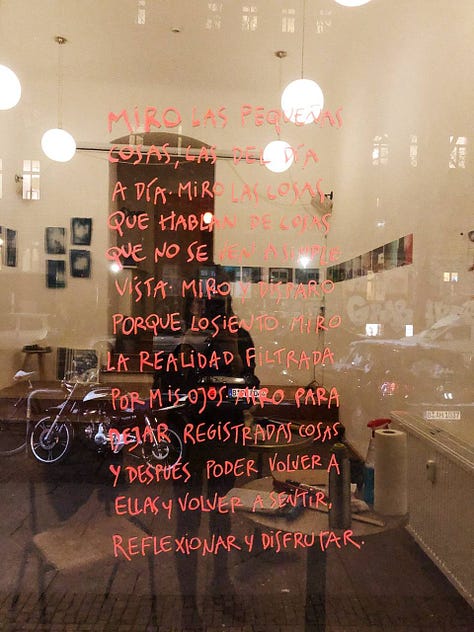 MIRO LAS PEQUEÑAS
COSAS, LAS DEL DÍA
A DÍA. MIRO LAS COSAS
QUE HABLAN DE COSAS
QUE NO SE VEN A SIMPLE
VISTA. MIRO Y DISPARO
PORQUE LO SIENTO. MIRO
LA REALIDAD FILTRADA
POR MIS OJOS. MIRO PARA
DEJAR REGISTRADAS COSAS
Y DESPUÉS PODER VOLVER A
ELLAS Y VOLVER A SENTIR,
REFLEXIONAR Y DISFRUTAR.